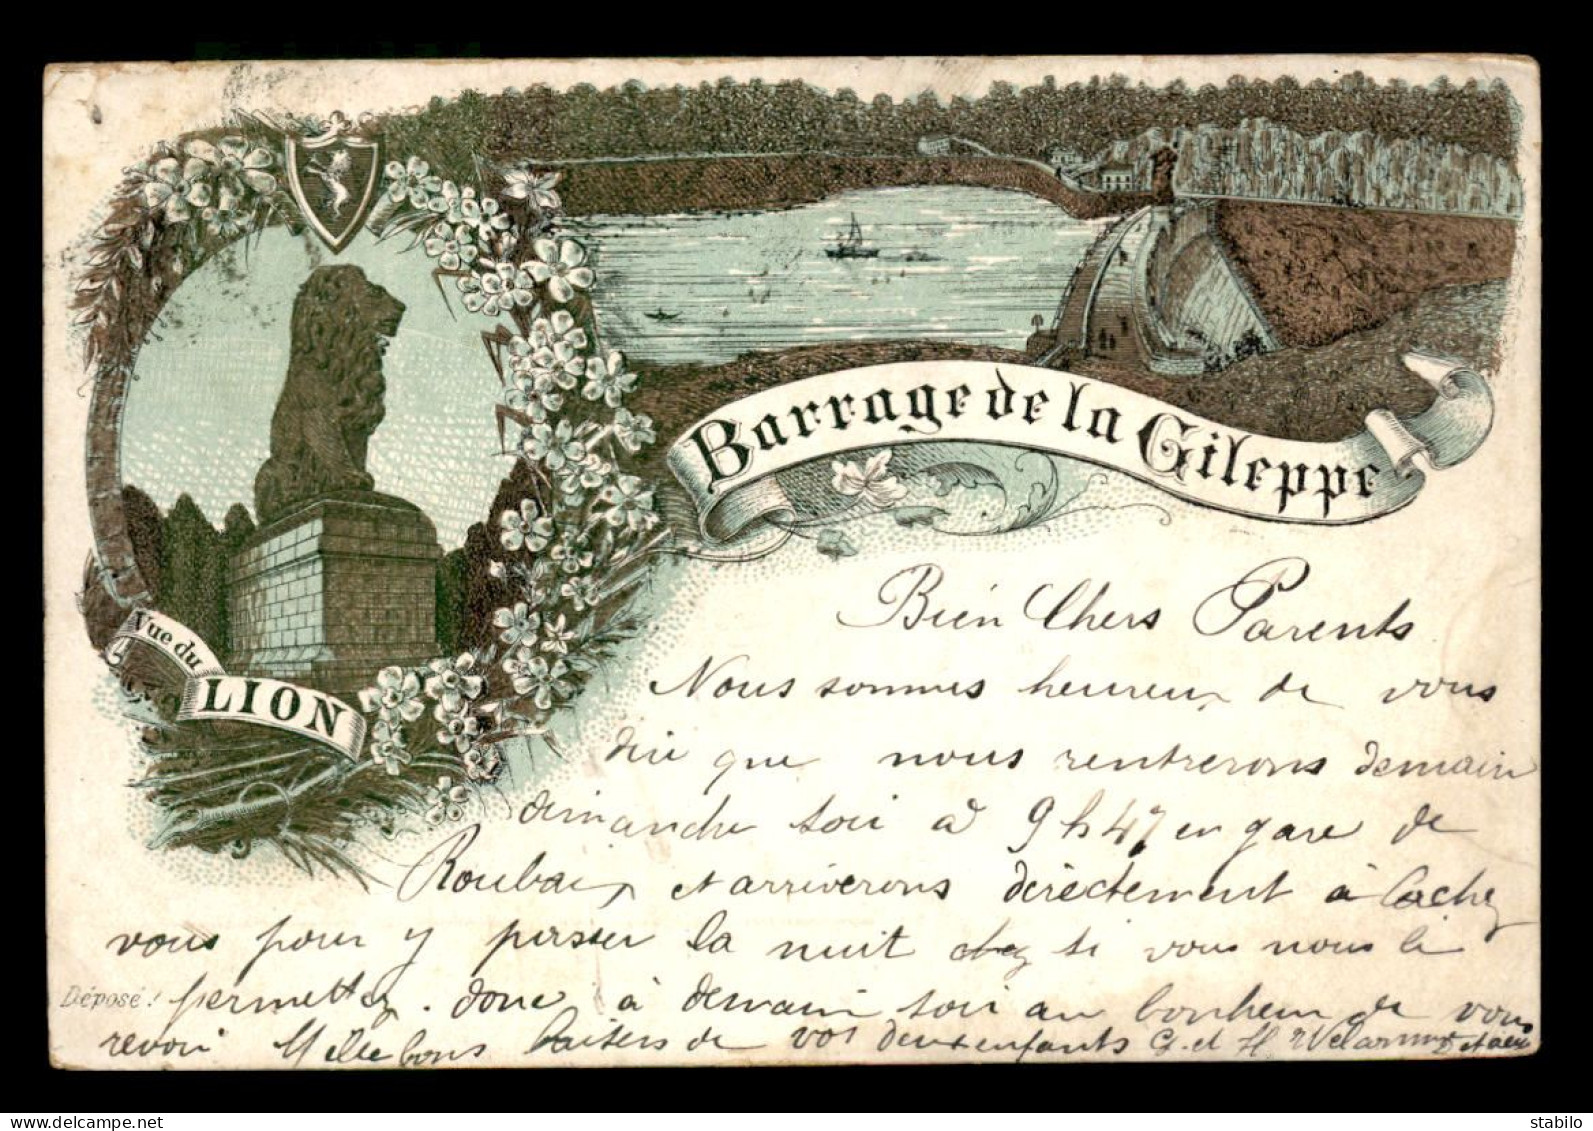 Barrage de la Gileppe
Vue du
LION
Bien Chers Parents
Nous sommes heureux de vous
dire que nous rentrerons demain
dimanche soir à 9 h 47 en gare de
Roubaix et arriverons directement à
vous pour y passer la nuit chez si vous nous le
Déposé! permettez. donc à demain soir au bonheur de vous
revoir Mille bons baisers de vos deux enfants G. et H.
delcampe.net
stabilo